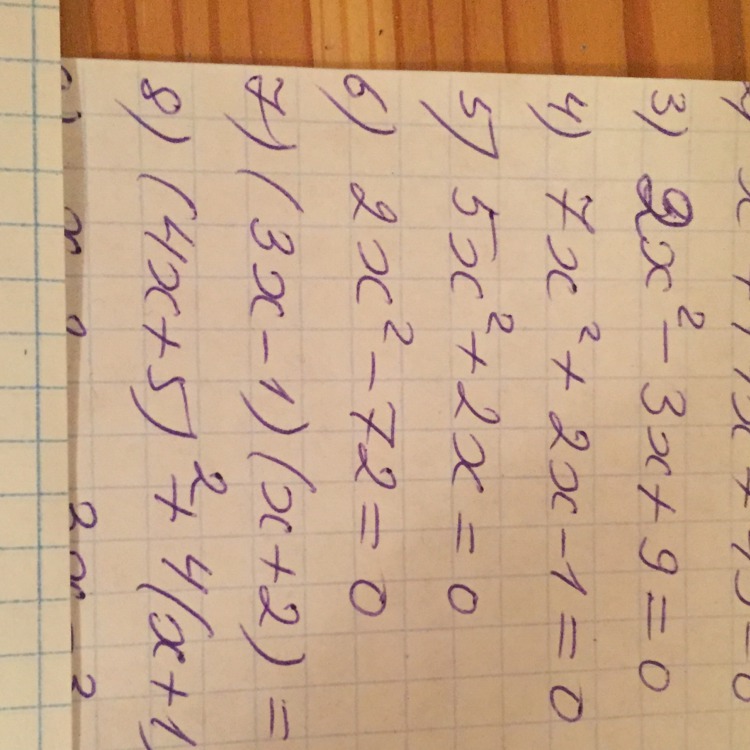 3) 2x² - 3x + 9 = 0
4) 7x² + 2x - 1 = 0
5) 5x² + 2x = 0
6) 2x² - 72 = 0
7) (3x - 1)(x + 2) =
8) (4x + 5)² + 4(x + 1)